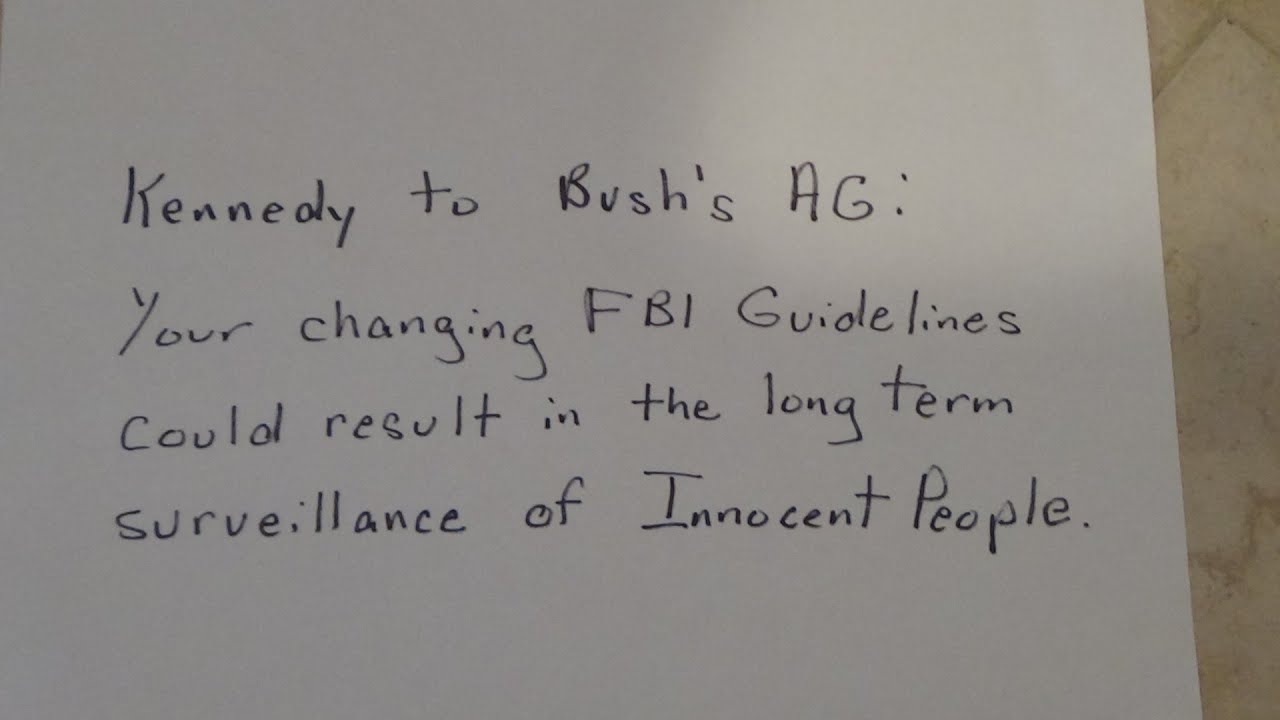 Kennedy to Bush's AG:
Your changing FBI Guidelines
could result in the long term
surveillance of Innocent People.